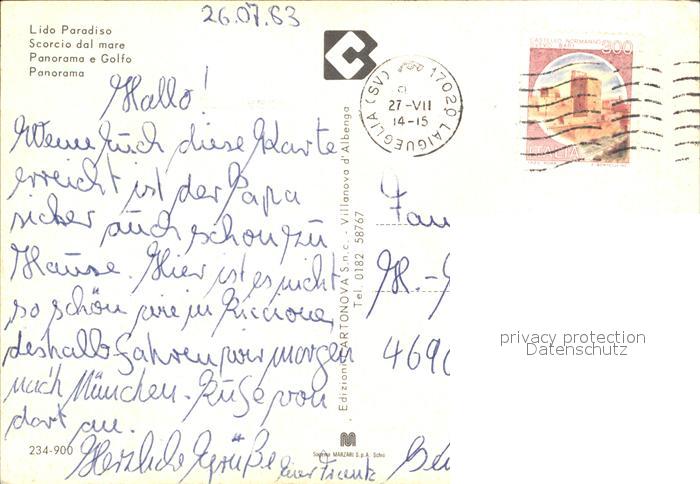 26.07.83
Lido Paradiso
Scorcio dal mare
Panorama e Golfo
Panorama
Hallo!
Wenn Euch diese Karte
erreicht ist der Papa
sicher auch schon zu
Hause. Hier ist es nicht
so schön wie in Riccione,
deshalb fahren wir morgen
nach München. Rufe von
dort an.
Herzliche Grüße
234-900
Edizioni CARTONOVA S.n.c. - Villanova d'Albenga
Tel. 0182 58767
17020 LAIGUEGLIA (SV)
27-VII
14-15
CASTELLO NORMANNO
SVEVO BARI
300
ITALIA
Fam
H. -
469
privacy protection
Datenschutz
MARZARI S.p.A. Schio